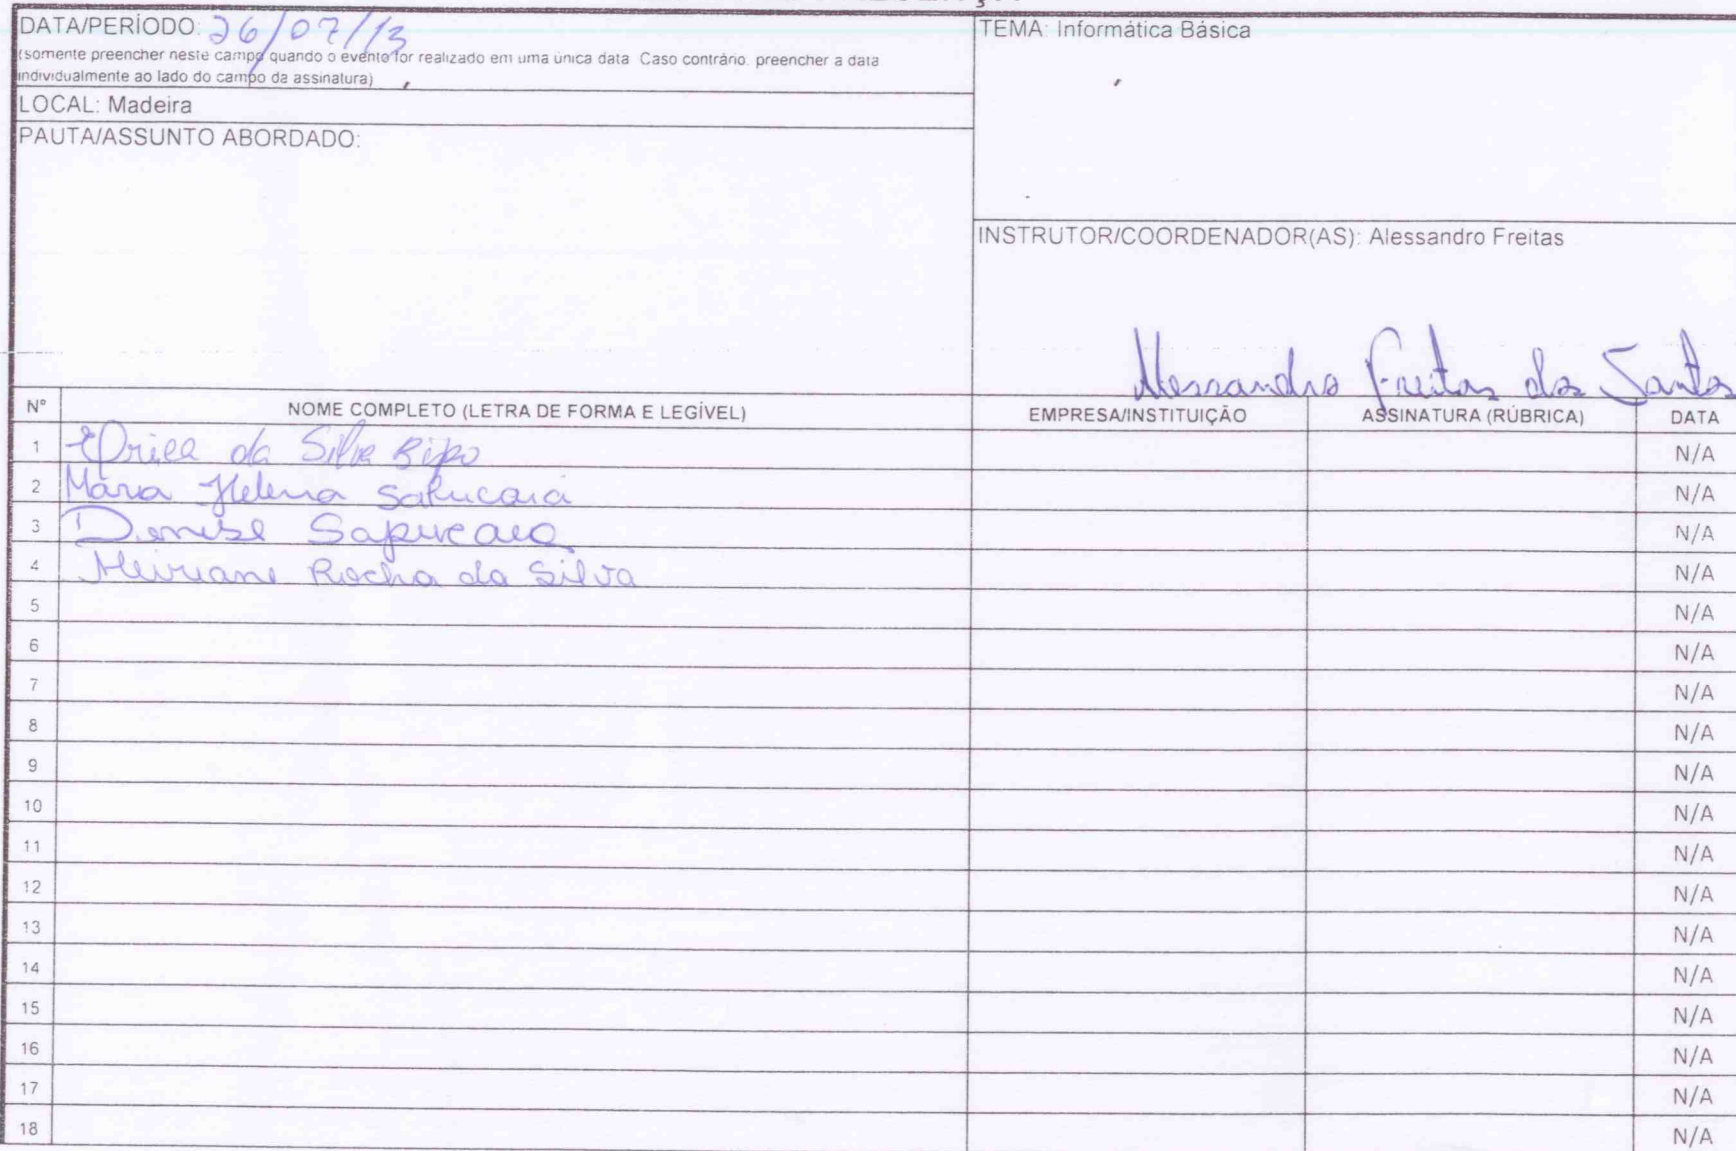 DATA/PERÍODO: 26/07/13
(somente preencher neste campo quando o evento for realizado em uma única data. Caso contrário, preencher a data
individualmente ao lado do campo da assinatura)
LOCAL: Madeira
PAUTA/ASSUNTO ABORDADO:
TEMA: Informática Básica
INSTRUTOR/COORDENADOR(AS): Alessandro Freitas
Alessandro Freitas dos Santos
Nº NOME COMPLETO (LETRA DE FORMA E LEGÍVEL) EMPRESA/INSTITUIÇÃO ASSINATURA (RÚBRICA) DATA
1 da Silva N/A
2 Maria Helena Sapucaia N/A
3 Denise Sapucaia N/A
4 Meiriane Rocha da Silva N/A
5 N/A
6 N/A
7 N/A
8 N/A
9 N/A
10 N/A
11 N/A
12 N/A
13 N/A
14 N/A
15 N/A
16 N/A
17 N/A
18 N/A